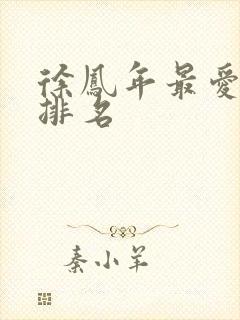 徐鳳年最愛
排名
秦小羊